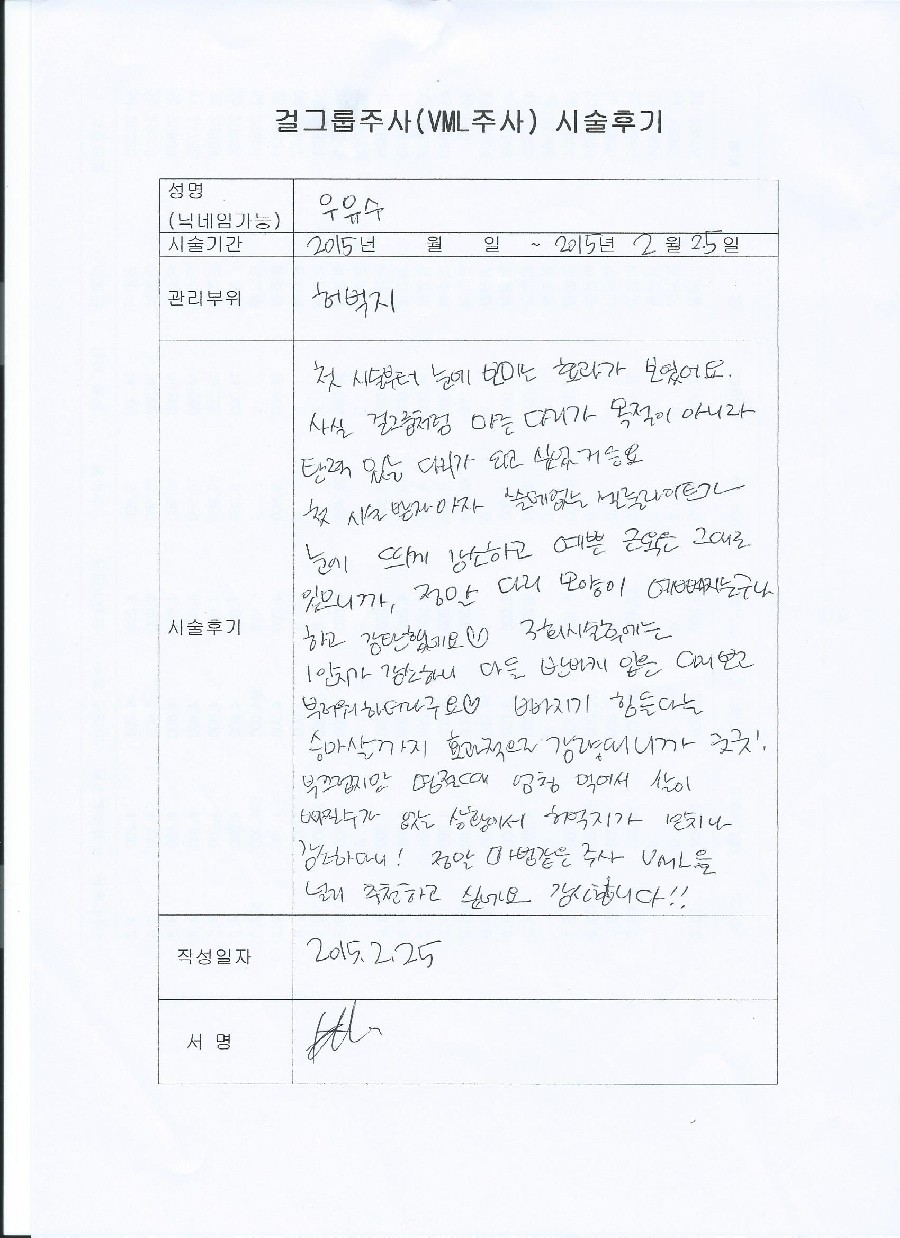 걸그룹주사(VML주사) 시술후기
성명
(닉네임가능)
우유수
시술기간 2015년 월 일 ~ 2015년 2월 25일
관리부위 허벅지
시술후기
첫 시술부터 눈에 보이는 효과가 보였어요.
사실 걸그룹처럼 마른 다리가 목적이 아니라
탄력 있는 다리가 되고 싶었거든요
첫 시술 받자마자 쓸데없는 셀룰라이트가
눈에 띄게 감소하고 예쁜 근육은 그대로
있으니까, 정말 다리 모양이 예뻐지는구나
하고 감탄했네요♡ 3회시술후에는
1인치가 감소하니 다들 반바지 입은 다리보고
부러워하더라구요♡ 빠지기 힘들다는
승마살까지 효과적으로 감량되니까 굿굿!
부끄럽지만 명절때 엄청 먹어서 살이
빠질수가 없는 상황에서 허벅지가 인치나
감소하다니! 정말 마법같은 주사 VML을
널리 추천하고 싶네요 감사합니다!!
작성일자 2015.2.25
서 명